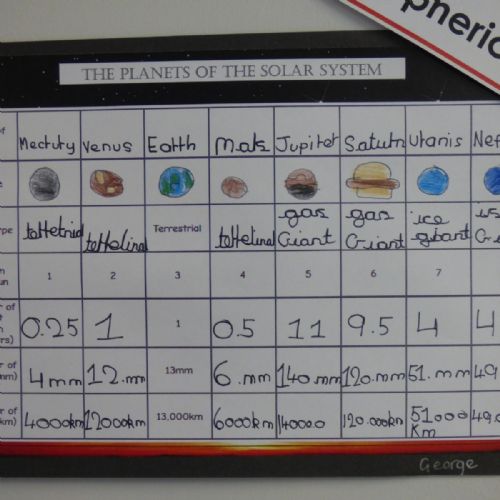 pheric
THE PLANETS OF THE SOLAR SYSTEM
of Mectuty venus Eatth Mats Jupitet Satutn Utanis Nef
e
pe tettettrid tettellinal Terrestrial tettelinal gas Giant gas Giant ice giant Gi
n un 1 2 3 4 5 6 7
r of rs) 0.25 1 1 0.5 11 9.5 4 4
r of mm) 4mm 12.mm 13mm 6.mm 140.mm 120.mm 51.mm 49
r of km) 4000km 12000km 13,000km 6000km 140000 120.000km 51000 Km 49.0
George